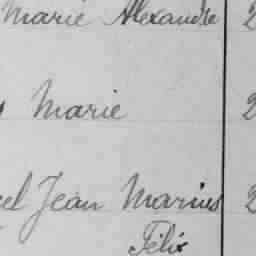 Marie Alexandre 2
Marie 2
el Jean Marius 2
Félix